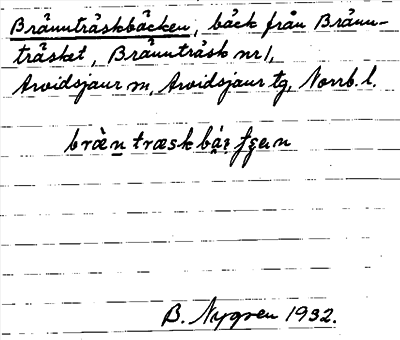 Brännträskbäcken, bäck från Bränn-
träsket, Brännträsk nr 1,
Arvidsjaur sn, Arvidsjaur tg, Norrb. l.
B. Nygren 1932.